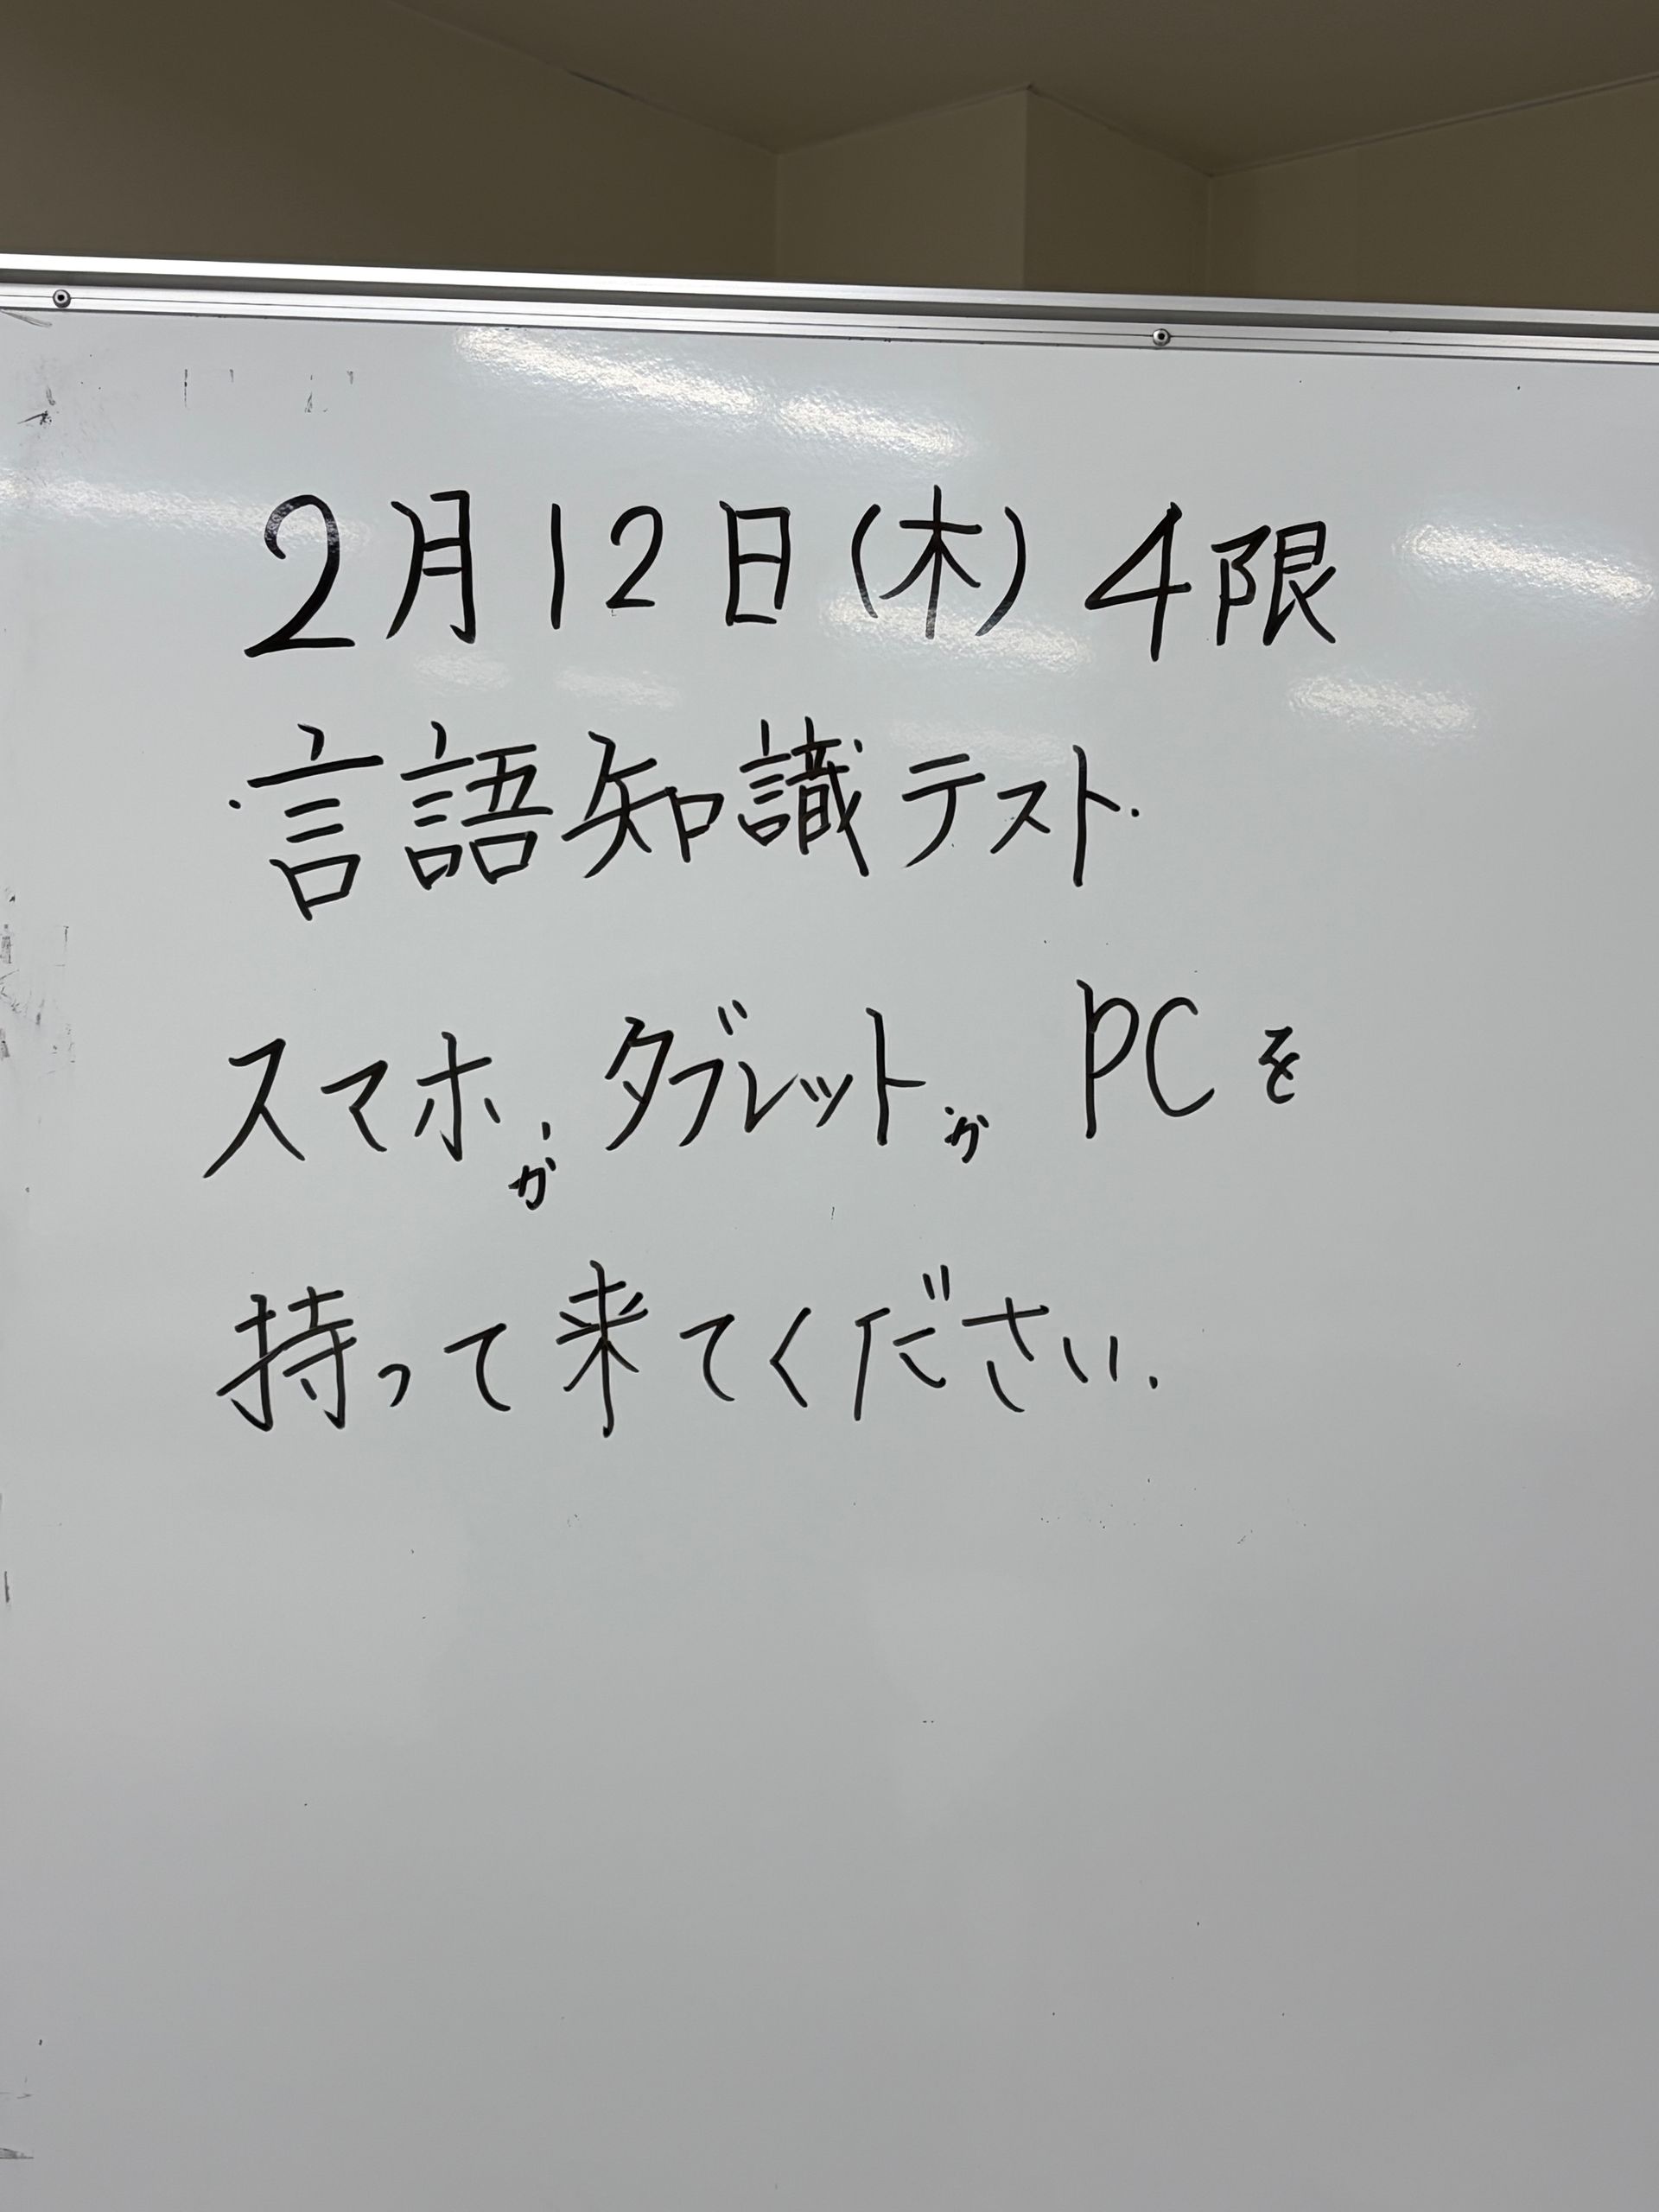 2月12日(木)4限
・言語知識テスト・
スマホかタブレットかPCを
持って来てください.